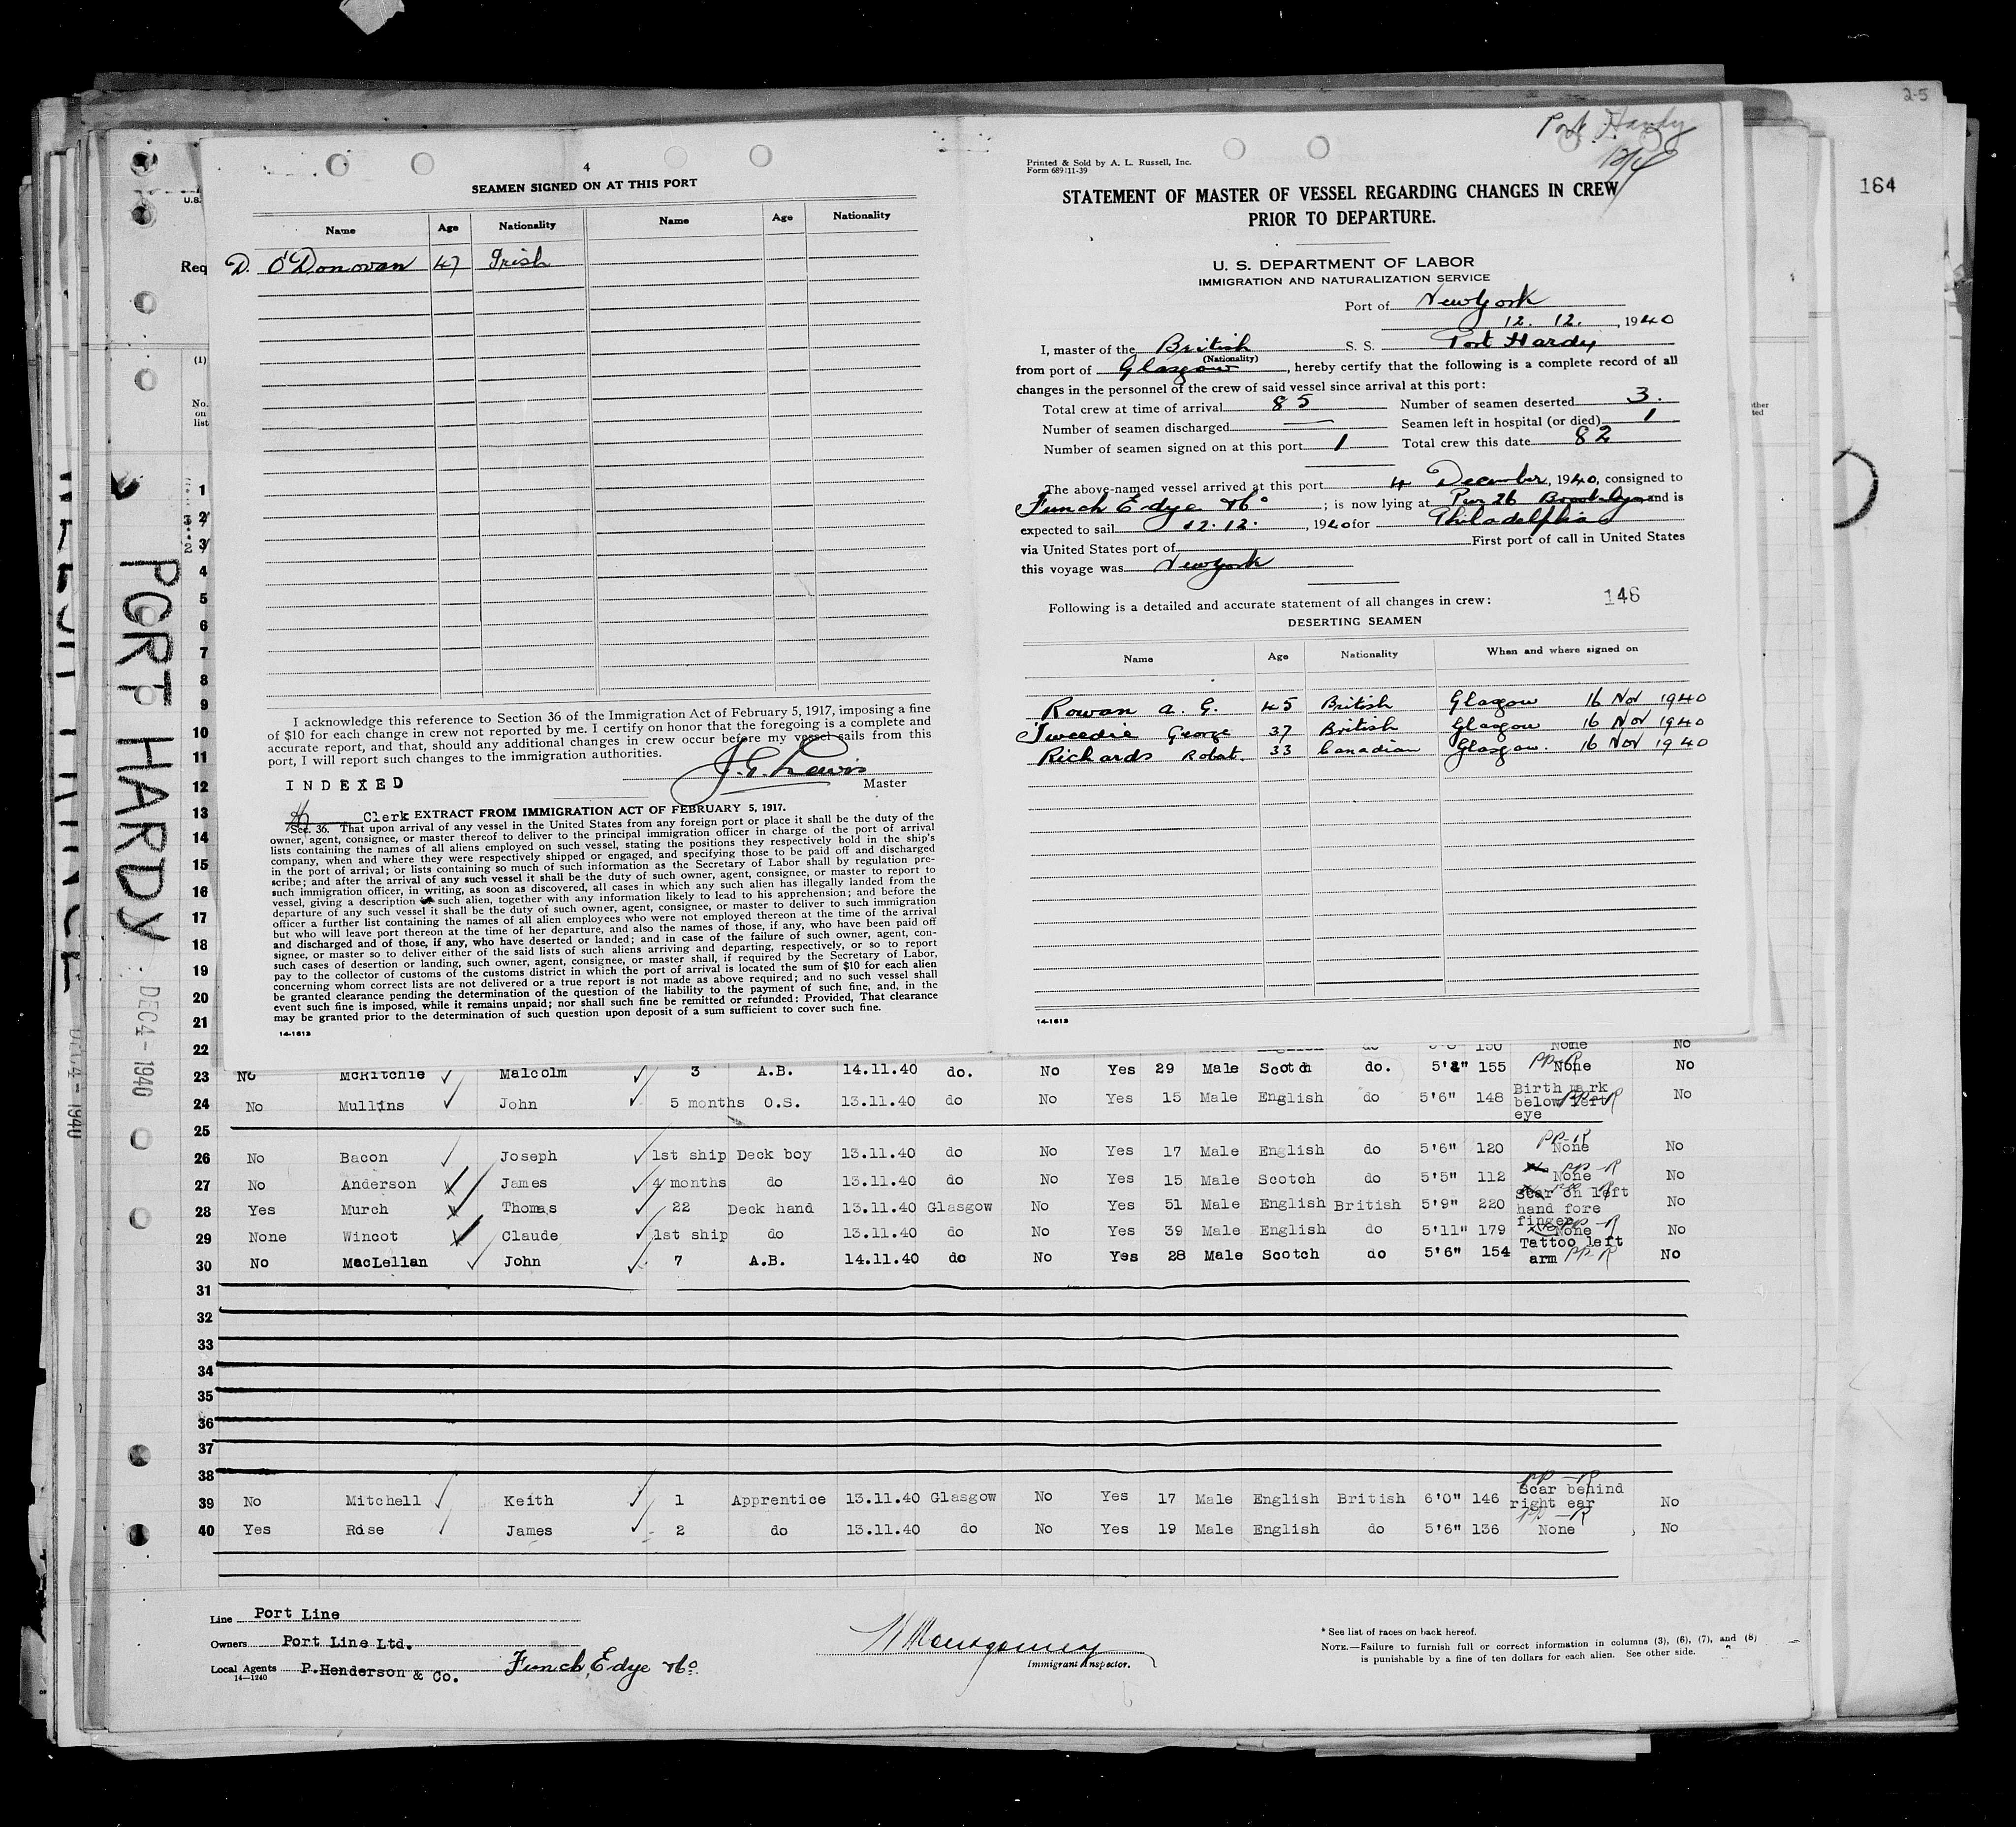 2-5
164
4
SEAMEN SIGNED ON AT THIS PORT
Name Age Nationality Name Age Nationality
D. O'Donovan 47 Irish
I acknowledge this reference to Section 36 of the Immigration Act of February 5, 1917, imposing a fine
of $10 for each change in crew not reported by me. I certify on honor that the foregoing is a complete and
accurate report, and that, should any additional changes in crew occur before my vessel sails from this
port, I will report such changes to the immigration authorities.
J. G. Lewis
Master
INDEXED
Clerk
EXTRACT FROM IMMIGRATION ACT OF FEBRUARY 5, 1917.
Sec. 36. That upon arrival of any vessel in the United States from any foreign port or place it shall be the duty of the
owner, agent, consignee, or master thereof to deliver to the principal immigration officer in charge of the port of arrival
lists containing the names of all aliens employed on such vessel, stating the positions they respectively hold in the ship's
company, when and where they were respectively shipped or engaged, and specifying those to be paid off and discharged
in the port of arrival; or lists containing so much of such information as the Secretary of Labor shall by regulation pre-
scribe; and after the arrival of any such vessel it shall be the duty of such owner, agent, consignee, or master to report to
such immigration officer, in writing, as soon as discovered, all cases in which any such alien has illegally landed from the
vessel, giving a description of such alien, together with any information likely to lead to his apprehension; and before the
departure of any such vessel it shall be the duty of such owner, agent, consignee, or master to deliver to such immigration
officer a further list containing the names of all alien employees who were not employed thereon at the time of the arrival
but who will leave port thereon at the time of her departure, and also the names of those, if any, who have been paid off
and discharged and of those, if any, who have deserted or landed; and in case of the failure of such owner, agent, con-
signee, or master so to deliver either of the said lists of such aliens arriving and departing, respectively, or so to report
such cases of desertion or landing, such owner, agent, consignee, or master shall, if required by the Secretary of Labor,
pay to the collector of customs of the customs district in which the port of arrival is located the sum of $10 for each alien
concerning whom correct lists are not delivered or a true report is not made as above required; and no such vessel shall
be granted clearance pending the determination of the question of the liability to the payment of such fine, and, in the
event such fine is imposed, while it remains unpaid; nor shall such fine be remitted or refunded: Provided, That clearance
may be granted prior to the determination of such question upon deposit of a sum sufficient to cover such fine.
14-1613
Port Hardy
Printed & Sold by A. L. Russell, Inc.
Form 689 11-39
STATEMENT OF MASTER OF VESSEL REGARDING CHANGES IN CREW
PRIOR TO DEPARTURE.
U. S. DEPARTMENT OF LABOR
IMMIGRATION AND NATURALIZATION SERVICE
Port of New York
12. 12. , 1940
I, master of the British S. S. Port Hardy
(Nationality)
from port of Glasgow, hereby certify that the following is a complete record of all
changes in the personnel of the crew of said vessel since arrival at this port:
Total crew at time of arrival 85 Number of seamen deserted 3.
Number of seamen discharged — Seamen left in hospital (or died) 1
Number of seamen signed on at this port 1 Total crew this date 82
The above-named vessel arrived at this port 4 December, 1940, consigned to
Funch Edye & Co ; is now lying at Pier 26 Brooklyn and is
expected to sail 12. 12. , 1940 for Philadelphia
via United States port of First port of call in United States
this voyage was New York
146
Following is a detailed and accurate statement of all changes in crew:
DESERTING SEAMEN
Name Age Nationality When and where signed on
Rowan A. G. 45 British Glasgow 16 Nov 1940
Tweedie George 37 British Glasgow 16 Nov 1940
Richards Robat. 33 Canadian Glasgow. 16 Nov 1940
14-1613
U.S.
Req
(1)
No. on list
PORT HARDY
DEC 4 - 1940
DEC 4 - 1940
1
2
3
4
5
6
7
8
9
10
11
12
13
14
15
16
17
18
19
20
21
22 do 150 None No
23 No McRitchie Malcolm 3 A.B. 14.11.40 do. No Yes 29 Male Scotch do. 5'8" 155 None No
24 No Mullins John 5 months O.S. 13.11.40 do No Yes 15 Male English do 5'6" 148 Birth mark below left eye No
25
26 No Bacon Joseph 1st ship Deck boy 13.11.40 do No Yes 17 Male English do 5'6" 120 None No
27 No Anderson James 4 months do 13.11.40 do No Yes 15 Male Scotch do 5'5" 112 None No
28 Yes Murch Thomas 22 Deck hand 13.11.40 Glasgow No Yes 51 Male English British 5'9" 220 Scar on left hand fore finger No
29 None Wincot Claude 1st ship do 13.11.40 do No Yes 39 Male English do 5'11" 179 None No
30 No MacLellan John 7 A.B. 14.11.40 do No Yes 28 Male Scotch do 5'6" 154 Tattoo left arm No
31
32
33
34
35
36
37
38
39 No Mitchell Keith 1 Apprentice 13.11.40 Glasgow No Yes 17 Male English British 6'0" 146 Scar behind right ear No
40 Yes Rose James 2 do 13.11.40 do No Yes 19 Male English do 5'6" 136 None No
Line Port Line
Owners Port Line Ltd.
Local Agents P. Henderson & Co. Funch, Edye & Co.
14—1240
Montgomery
Immigrant Inspector.
* See list of races on back hereof.
NOTE.—Failure to furnish full or correct information in columns (3), (6), (7), and (8)
is punishable by a fine of ten dollars for each alien. See other side.